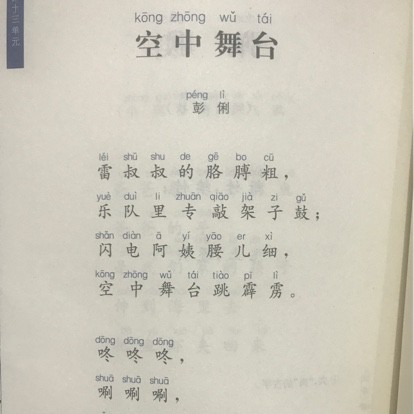 十三单元
kōng zhōng wǔ tái
空中舞台
péng lì
彭俐
léi shū shu de gē bo cū
雷叔叔的胳膊粗，
yuè duì li zhuān qiāo jià zi gǔ
乐队里专敲架子鼓；
shǎn diàn ā yí yāo er xì
闪电阿姨腰儿细，
kōng zhōng wǔ tái tiào pī lì
空中舞台跳霹雳。
dōng dōng dōng
咚咚咚，
shuā shuā shuā
唰唰唰，